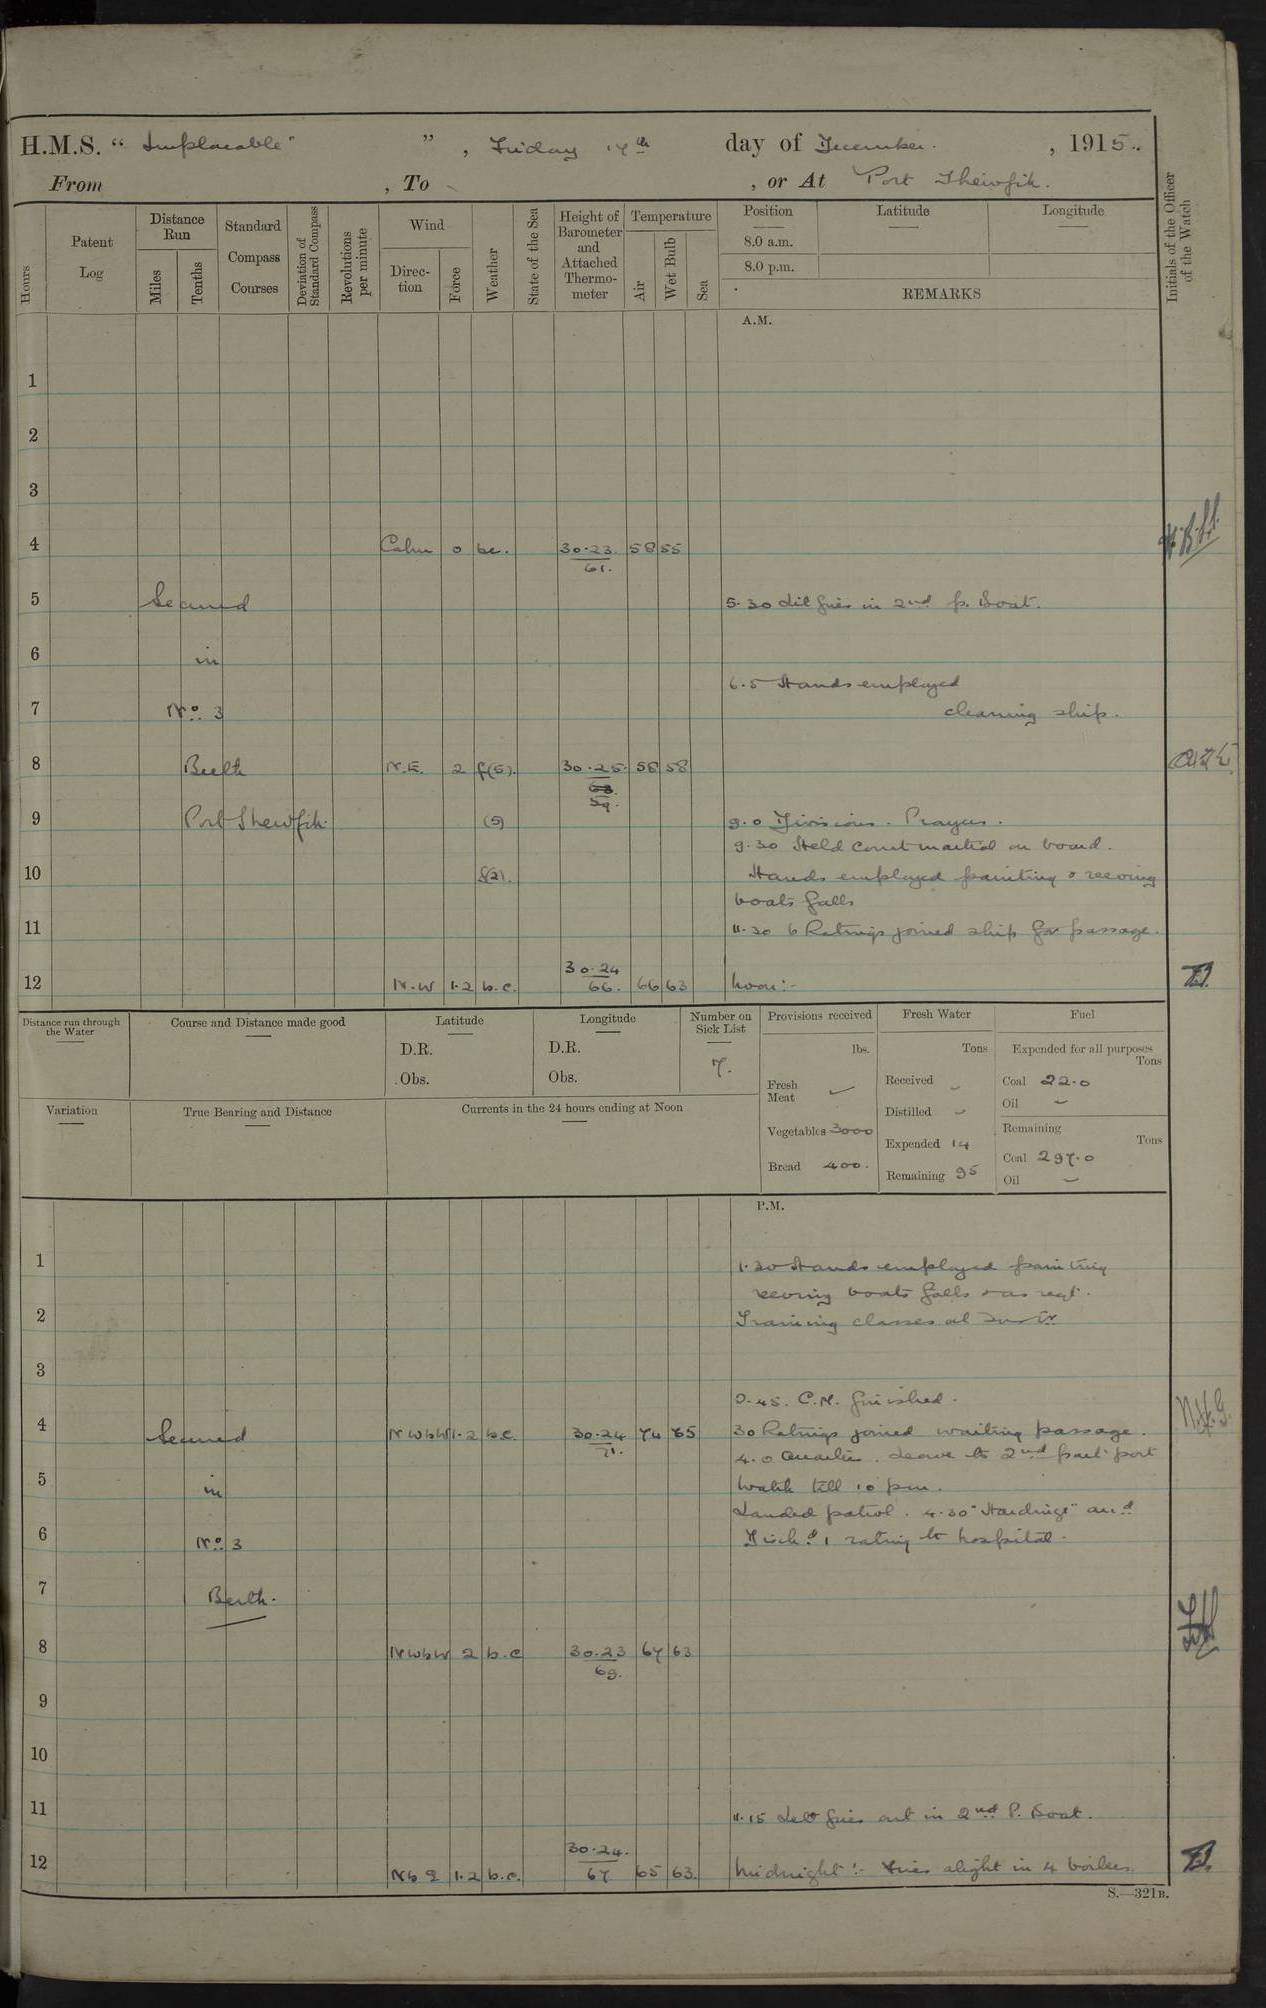 H.M.S. “ Implacable ” , Friday 17th day of December. , 1915.
From , To , or At Port Thewfik.
Hours
Patent Log
Distance Run
Miles
Tenths
Standard Compass Courses
Deviation of Standard Compass
Revolutions per minute
Wind
Direction
Force
Weather
State of the Sea
Height of Barometer and Attached Thermometer
Temperature
Air
Wet Bulb
Sea
Position
Latitude
Longitude
8.0 a.m.
8.0 p.m.
REMARKS
Initials of the Officer of the Watch
A.M.
1
2
3
4 Calm 0 bc. 30.23. 58 55
61.
5 Secured 5.30 Lit fires in 2nd p. Boat.
6 in
6.5 Hands employed
7 No. 3 cleaning ship.
8 Berth N.E. 2 f(5). 30.25. 58 58
59.
9 Port Thewfik. (5) 9.0 Divisions. Prayers.
9.30 Held Court martial on board.
10 f(2). Hands employed painting & reeving
boats falls
11 11.30 6 Ratings joined ship for passage.
30.24
12 N.W 1.2 b.c. 66. 66 63 Noon:-
Distance run through the Water
Course and Distance made good
Latitude
D.R.
Obs.
Longitude
D.R.
Obs.
Number on Sick List
7.
Provisions received
lbs.
Fresh Meat
Vegetables 3000
Bread 400.
Fresh Water
Tons
Received
Distilled
Expended 14
Remaining 95
Fuel
Expended for all purposes
Tons
Coal 22.0
Oil
Remaining
Tons
Coal 297.0
Oil
Variation
True Bearing and Distance
Currents in the 24 hours ending at Noon
P.M.
1 1.30 Hands employed painting
reeving boats falls & as reqd.
2 Training classes at Instr
3
3.45. C.M. finished.
4 Secured NWbW 1.2 b.c. 30.24 74 65 30 Ratings joined waiting passage.
71.
4.0 Quarters. Leave to 2nd part port
5 in Watch till 10 pm.
Landed patrol. 4.30 "Hardinge" and
6 No. 3 Disch.d 1 rating to hospital.
7 Berth.
8 NWbW 2 b.c 30.23 67 63
69.
9
10
11 11.15 Let fires out in 2nd P. Boat.
30.24.
12 NbE 1.2 b.c. 67 65 63. Midnight:- Fires alight in 4 boilers.
S.—321B.